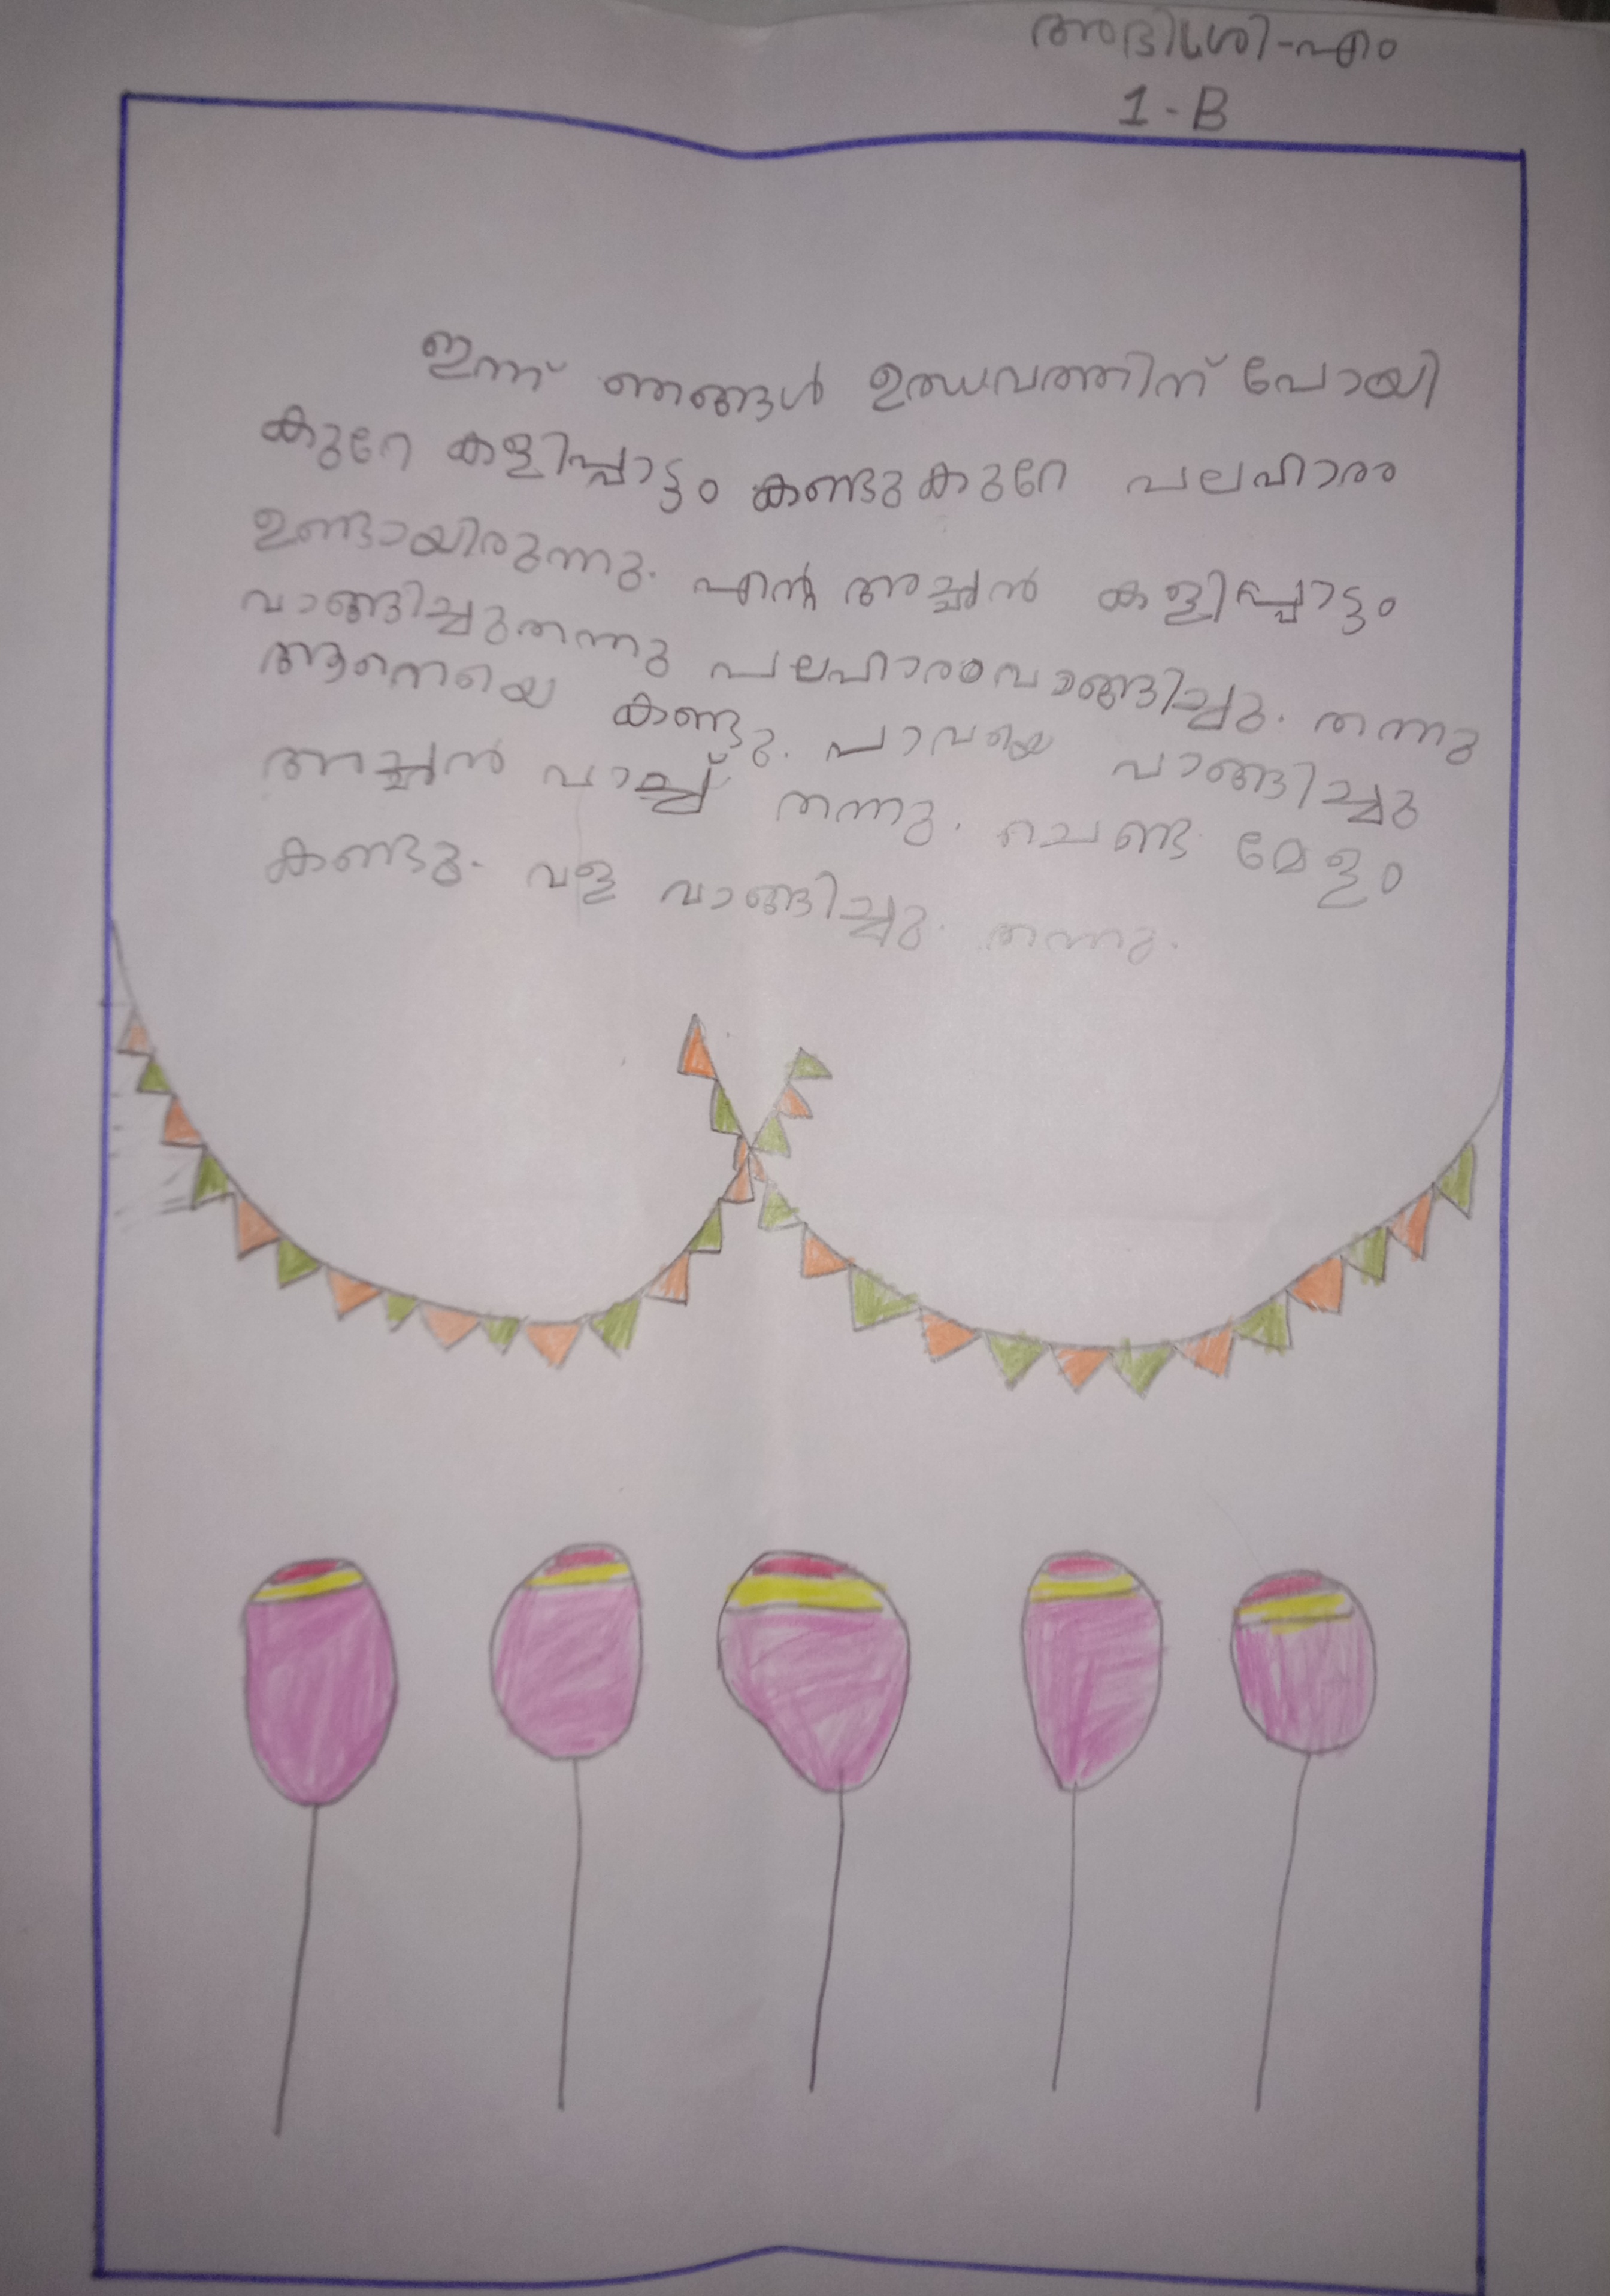 അഭിശ്രി-എം
1-B
ഇന്ന് ഞങ്ങൾ ഉത്ഥവത്തിന് പോയി
കുറേ കളിപ്പാട്ടം കണ്ടു കുറേ പലഹാരം
ഉണ്ടായിരുന്നു. എന്റ അച്ഛൻ കളിപ്പാട്ടം
വാങ്ങിച്ചുതന്നു പലഹാരംവാങ്ങിച്ചു. തന്നു
ആനെയെ കണ്ടു. പാവയെ വാങ്ങിച്ചു
അച്ഛൻ വാച്ച് തന്നു. ചെണ്ട മേളം
കണ്ടു. വള വാങ്ങിച്ചു. തന്നു.